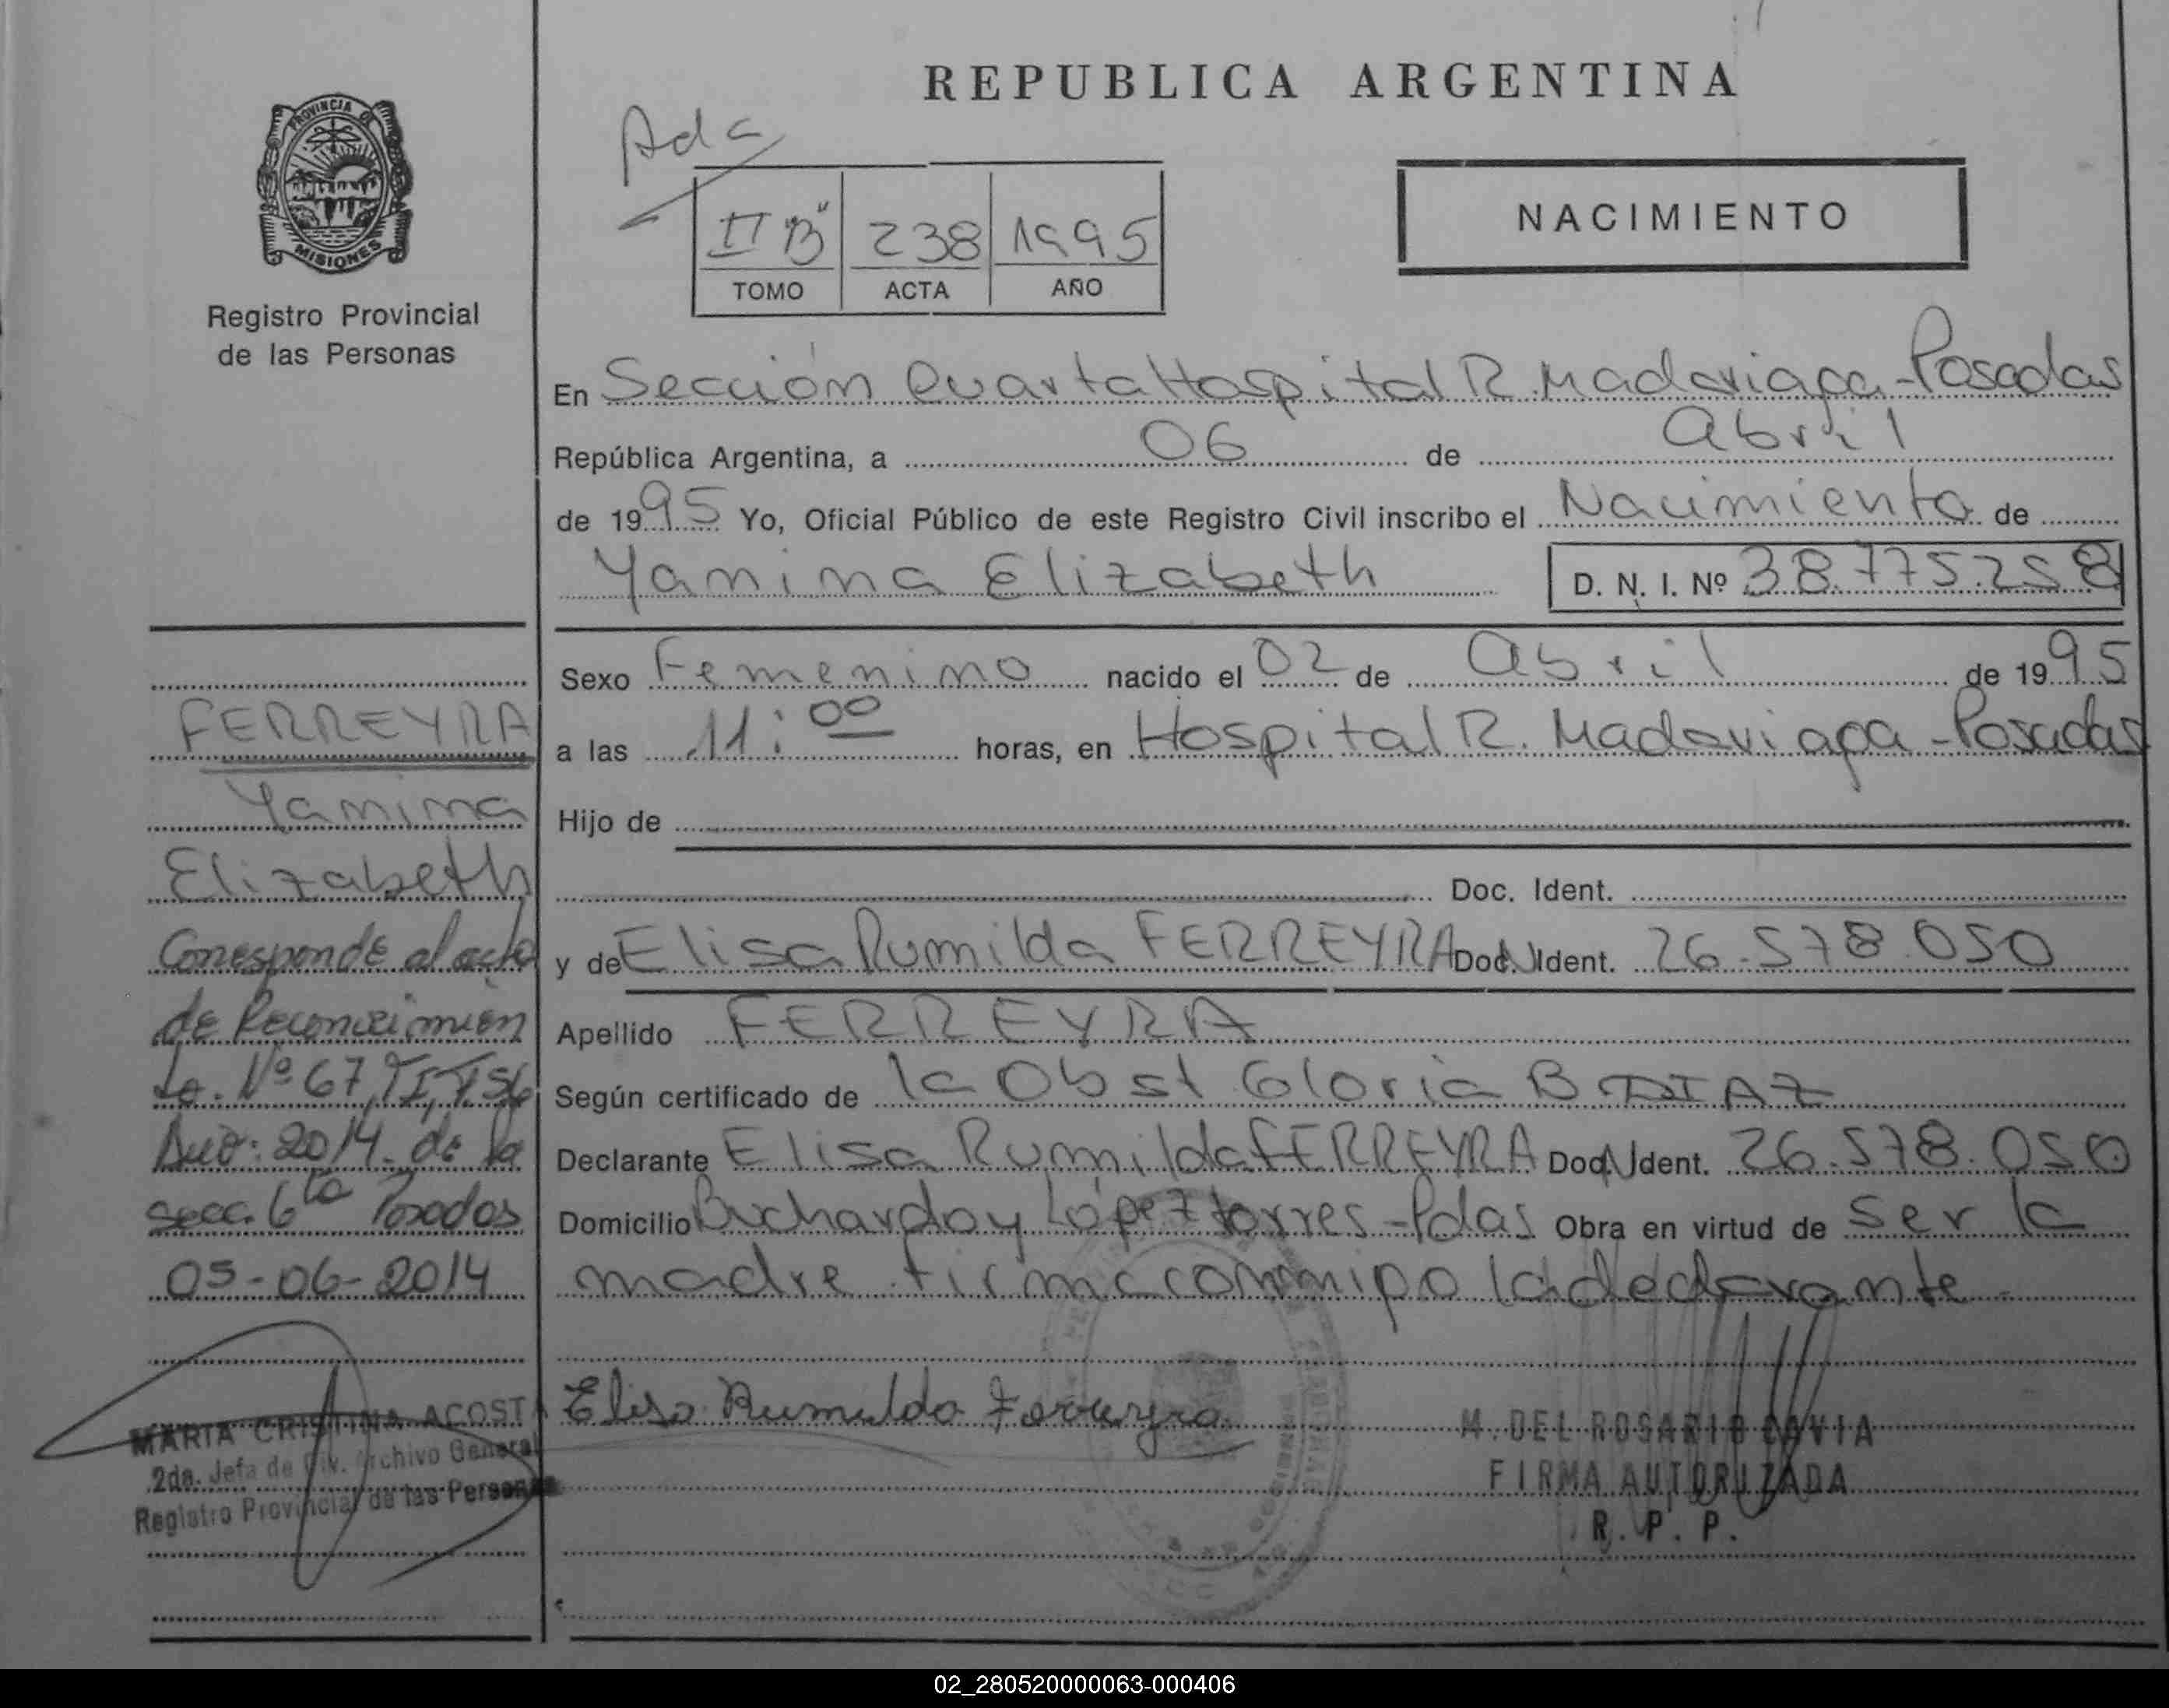 REPUBLICA ARGENTINA
PROVINCIA DE
MISIONES
Registro Provincial
de las Personas
Adc
II "B" 238 1995
TOMO ACTA AÑO
NACIMIENTO
En Sección Cuarta Hospital R. Madariaga - Posadas
República Argentina, a 06 de abril
de 1995 Yo, Oficial Público de este Registro Civil inscribo el Nacimiento de
Yanina Elizabeth D. N. I. Nº 38.775.258
Sexo Femenino nacido el 02 de abril de 1995
a las 11:00 horas, en Hospital R. Madariaga - Posadas
Hijo de
Doc. Ident.
y de Elisa Rumilda FERREYRA Doc. Ident. 26.578.050
Apellido FERREYRA
Según certificado de la Obst Gloria B DIAZ
Declarante Elisa Rumilda FERREYRA Doc. Ident. 26.578.050
Domicilio Buchardo y López torres - Pdas Obra en virtud de ser la
madre. firma conmigo la declarante
Elisa Rumilda Ferreyra
M. DEL ROSARIO GAVIA
FIRMA AUTORIZADA
R. P. P.
FERREYRA
Yanina
Elizabeth
Corresponde al acta
de Reconocimien
to. Nº 67, TI, F.56
Año: 2014. de la
secc. 6ta Posadas
05-06-2014
MARIA CRISTINA ACOSTA
2da. Jefa de Div. Archivo General
Registro Provincial de las Personas
02_280520000063-000406